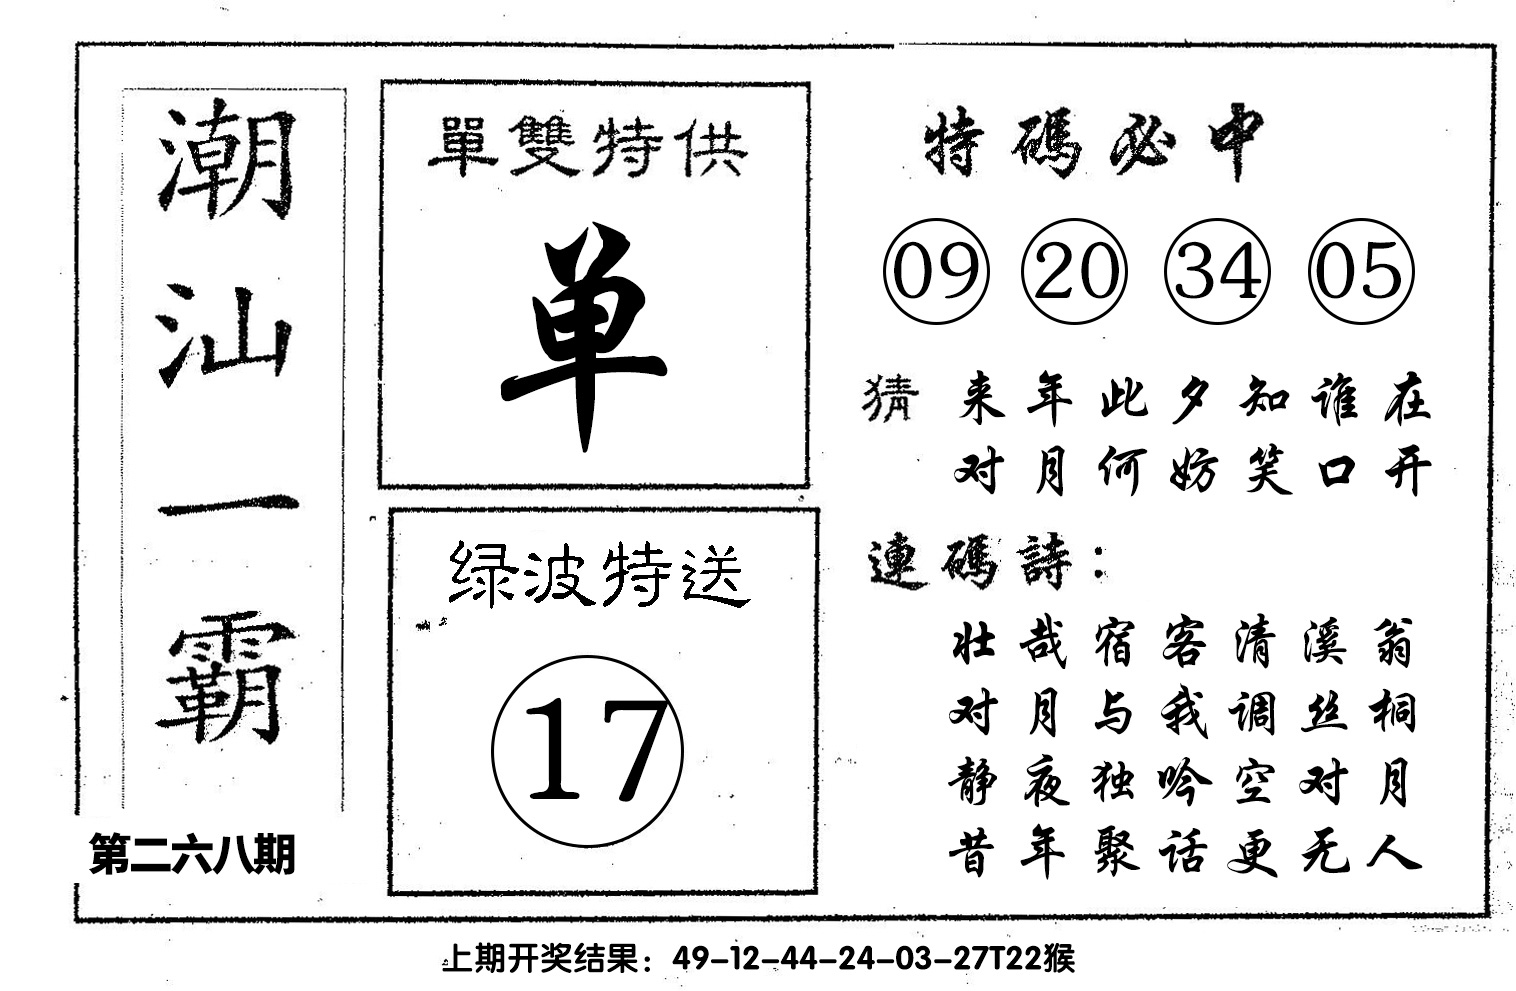 潮汕一霸
第二六八期
單雙特供
单
绿波特送
17
特碼必中
09 20 34 05
猜 来年此夕知谁在
对月何妨笑口开
連碼詩：
壮哉宿客清溪翁
对月与我调丝桐
静夜独吟空对月
昔年聚话更无人
上期开奖结果：49-12-44-24-03-27T22猴